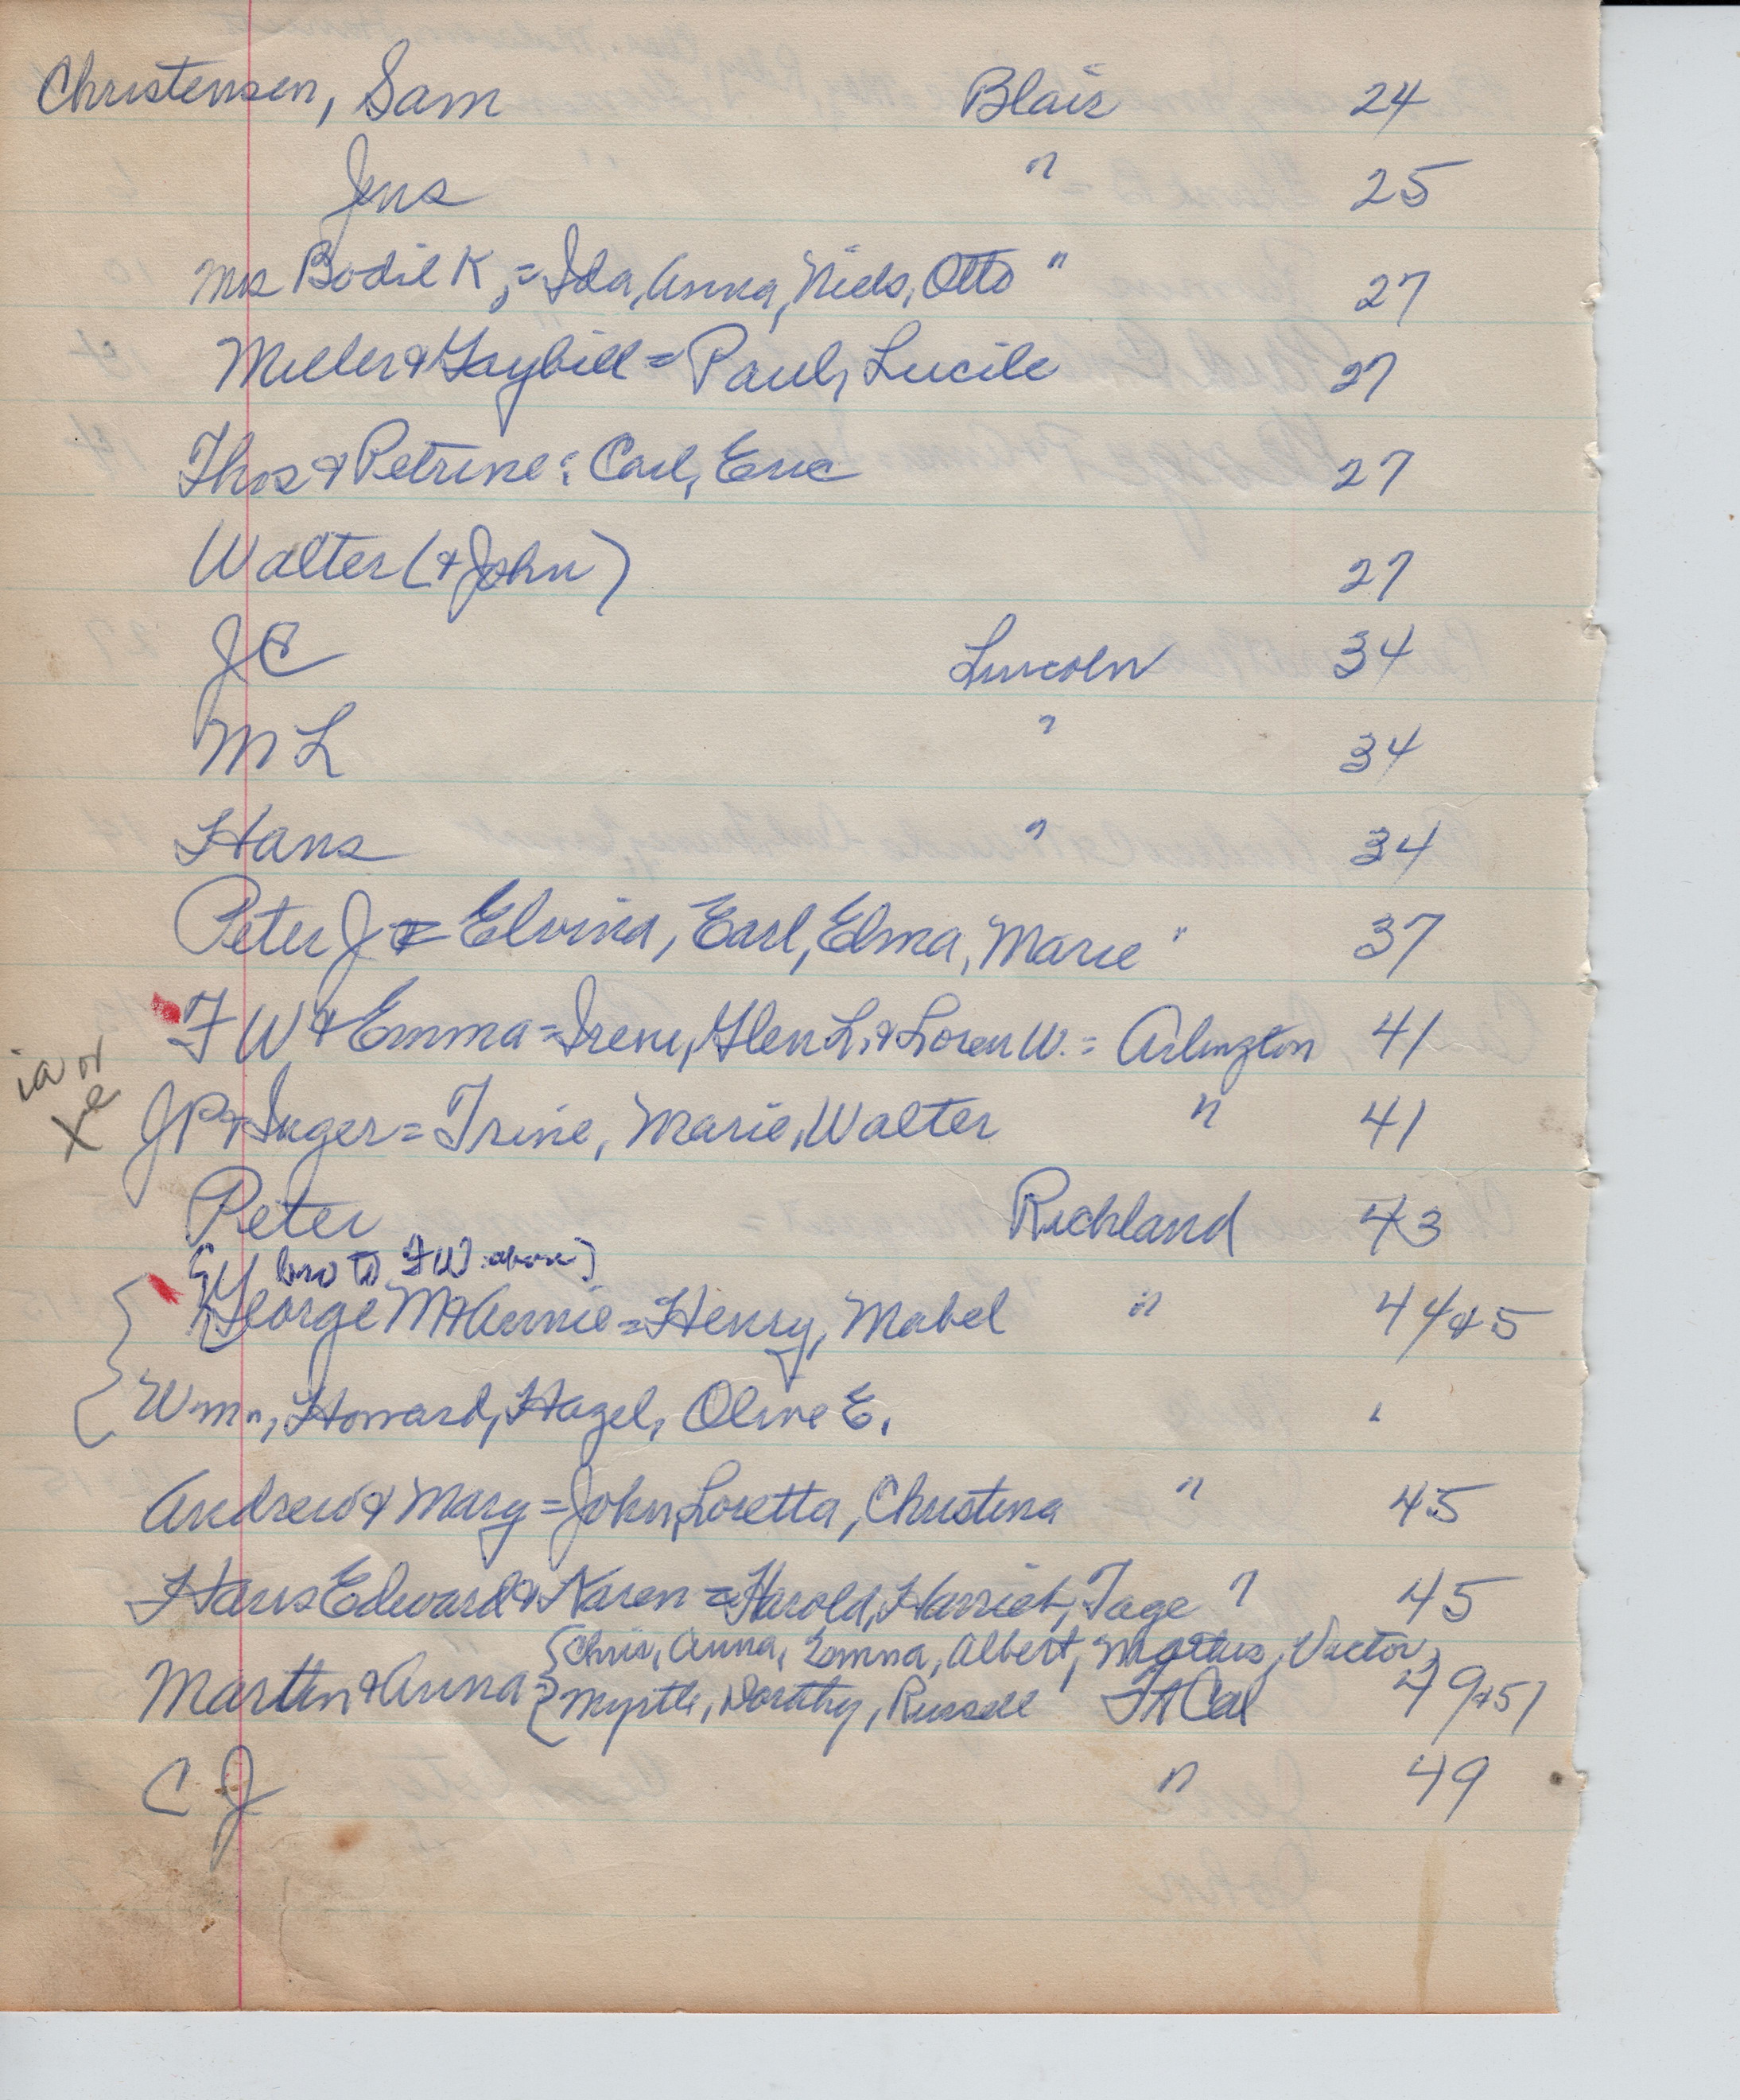 Christensen, Sam Blair 24
Jens " 25
Mrs Bodil K, = Ida, Anna, Niels, Otto " 27
Miller & Graybill = Paul, Lucile 27
Thos & Petrine: Carl, Eric 27
Walter (& John) 27
J C Lincoln 34
M L " 34
Hans " 34
Peter J = Elvina, Earl, Elma, Marie " 37
F W & Emma = Irene, Glen L, & Loren W. = Arlington 41
ia or
xe
J P & Inger = Trine, Marie, Walter " 41
Peter Richland 43
(bro to F W above)
George M & Annie = Henry, Mabel " 44 & 5
Wm, Howard, Hazel, Olive E. "
Andrew & Mary = John, Loretta, Christina " 45
Hans Edward & Karen = Harold, Harriet, Tage " 45
Chris, Anna, Emma, Albert, Victor,
Martin & Anna = Myrtle, Dorothy, Russell Ft Cal 49 & 51
C J " 49